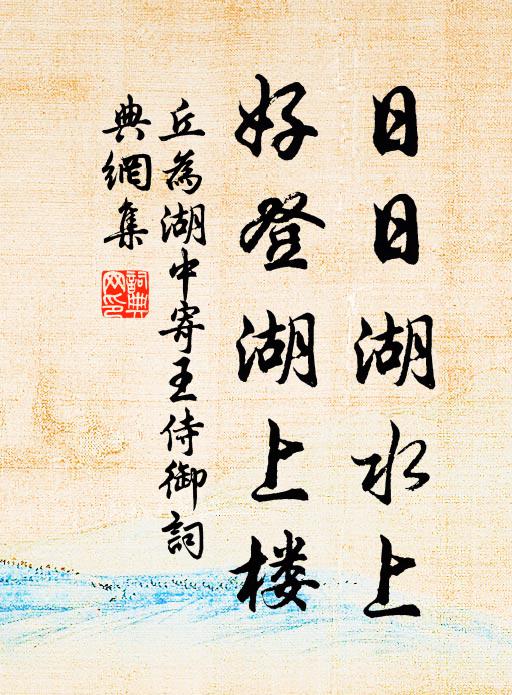 日日湖水上
好登湖上楼
丘為湖中寄王侍御詞
典網集
詞典
网印